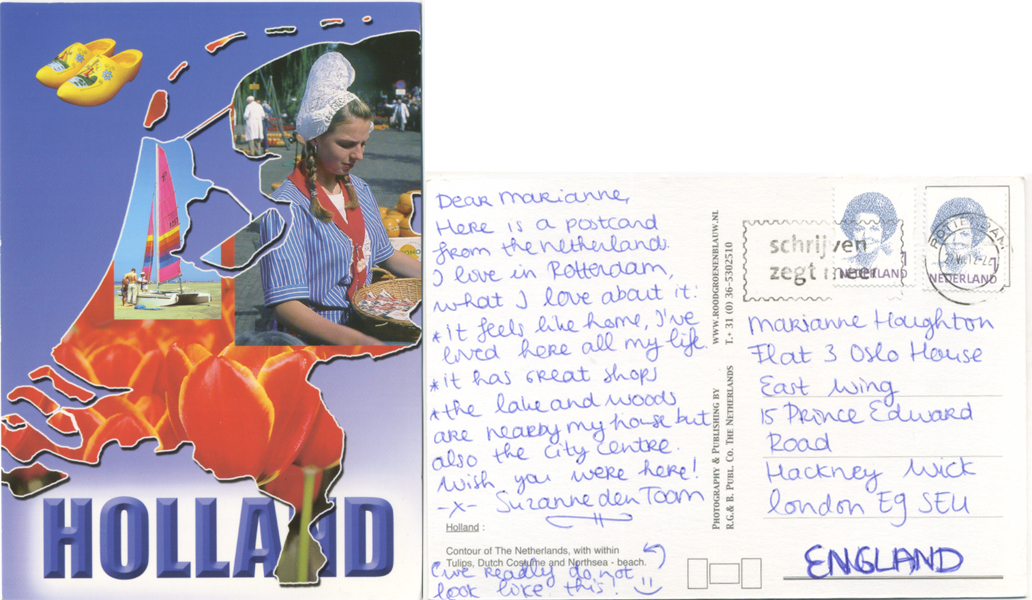 HOLLAND
Dear Marianne,
Here is a postcard
from the netherlands.
I love in Rotterdam,
what I love about it:
*it feels like home, I've
lived here all my life
*it has great shops
*the lake and woods
are nearby my house but
also the city centre.
wish you were here!
-x- Suzanne den Toom
Holland :
Contour of The Netherlands, with within
Tulips, Dutch Costume and Northsea - beach.
(we really do not
look like this!
PHOTOGRAPHY & PUBLISHING BY
R.G.& B. PUBL. CO. THE NETHERLANDS
WWW.ROODGROENENBLAUW.NL
T.+ 31 (0) 36-5302510
schrijven
zegt meer
NEDERLAND
NEDERLAND
ROTTERDAM
Marianne Houghton
Flat 3 Oslo House
East Wing
15 Prince Edward
Road
Hackney Wick
London E9 5EU
ENGLAND